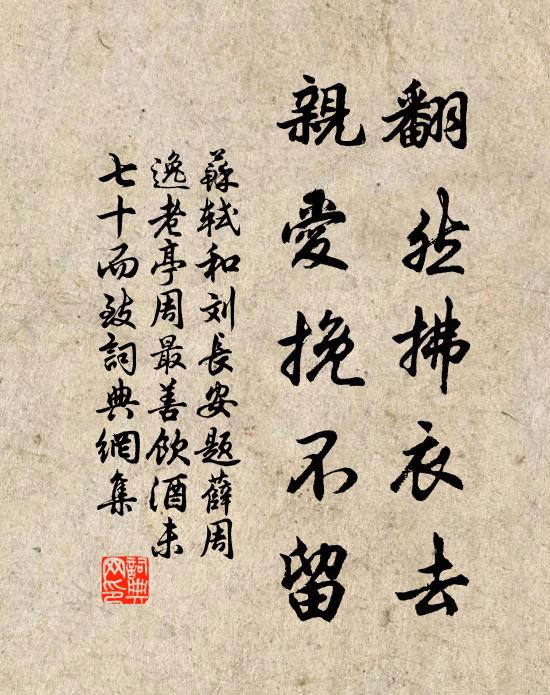 翻然拂衣去
親愛挽不留
蘇軾和刘長安题薛周
逸老亭周最善飲酒未
七十而致詞典網集
詞典
网印